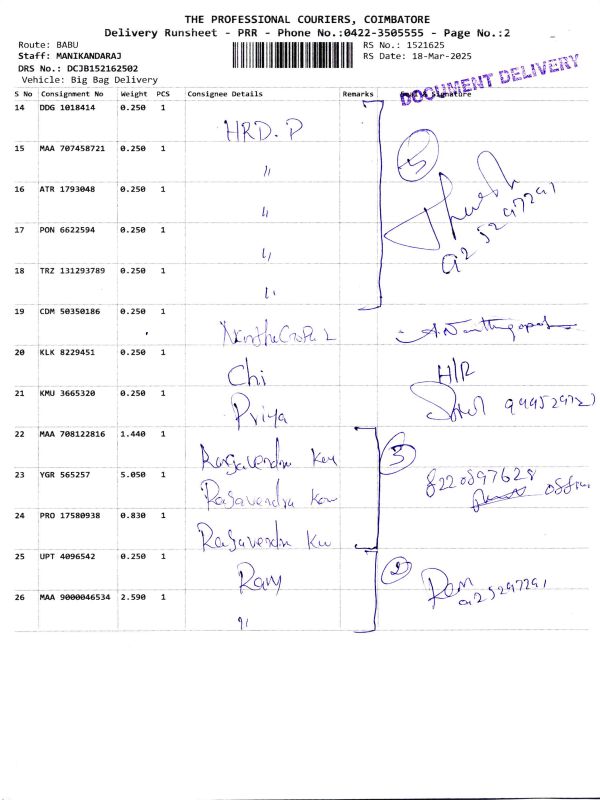 THE PROFESSIONAL COURIERS, COIMBATORE
Delivery Runsheet - PRR - Phone No.:0422-3505555 - Page No.:2
Route: BABU
RS No.: 1521625
Staff: MANIKANDARAJ
RS Date: 18-Mar-2025
DRS No.: DCJB152162502
Vehicle: Big Bag Delivery
DOCUMENT DELIVERY
S No Consignment No Weight PCS Consignee Details Remarks Signature
14 DDG 1018414 0.250 1
HRD. P
15 MAA 707458721 0.250 1
〃
5
16 ATR 1793048 0.250 1
〃
17 PON 6622594 0.250 1
〃
925297291
18 TRZ 131293789 0.250 1
〃
19 CDM 50350186 0.250 1
20 KLK 8229451 0.250 1
Chi
H/R
21 KMU 3665320 0.250 1
Priya
22 MAA 708122816 1.440 1
Ragavendra
3
23 YGR 565257 5.050 1
Ragavendra
8220897628
24 PRO 17580938 0.830 1
Ragavendra
25 UPT 4096542 0.250 1
Ram
2
Ram
925297291
26 MAA 9000046534 2.590 1
〃